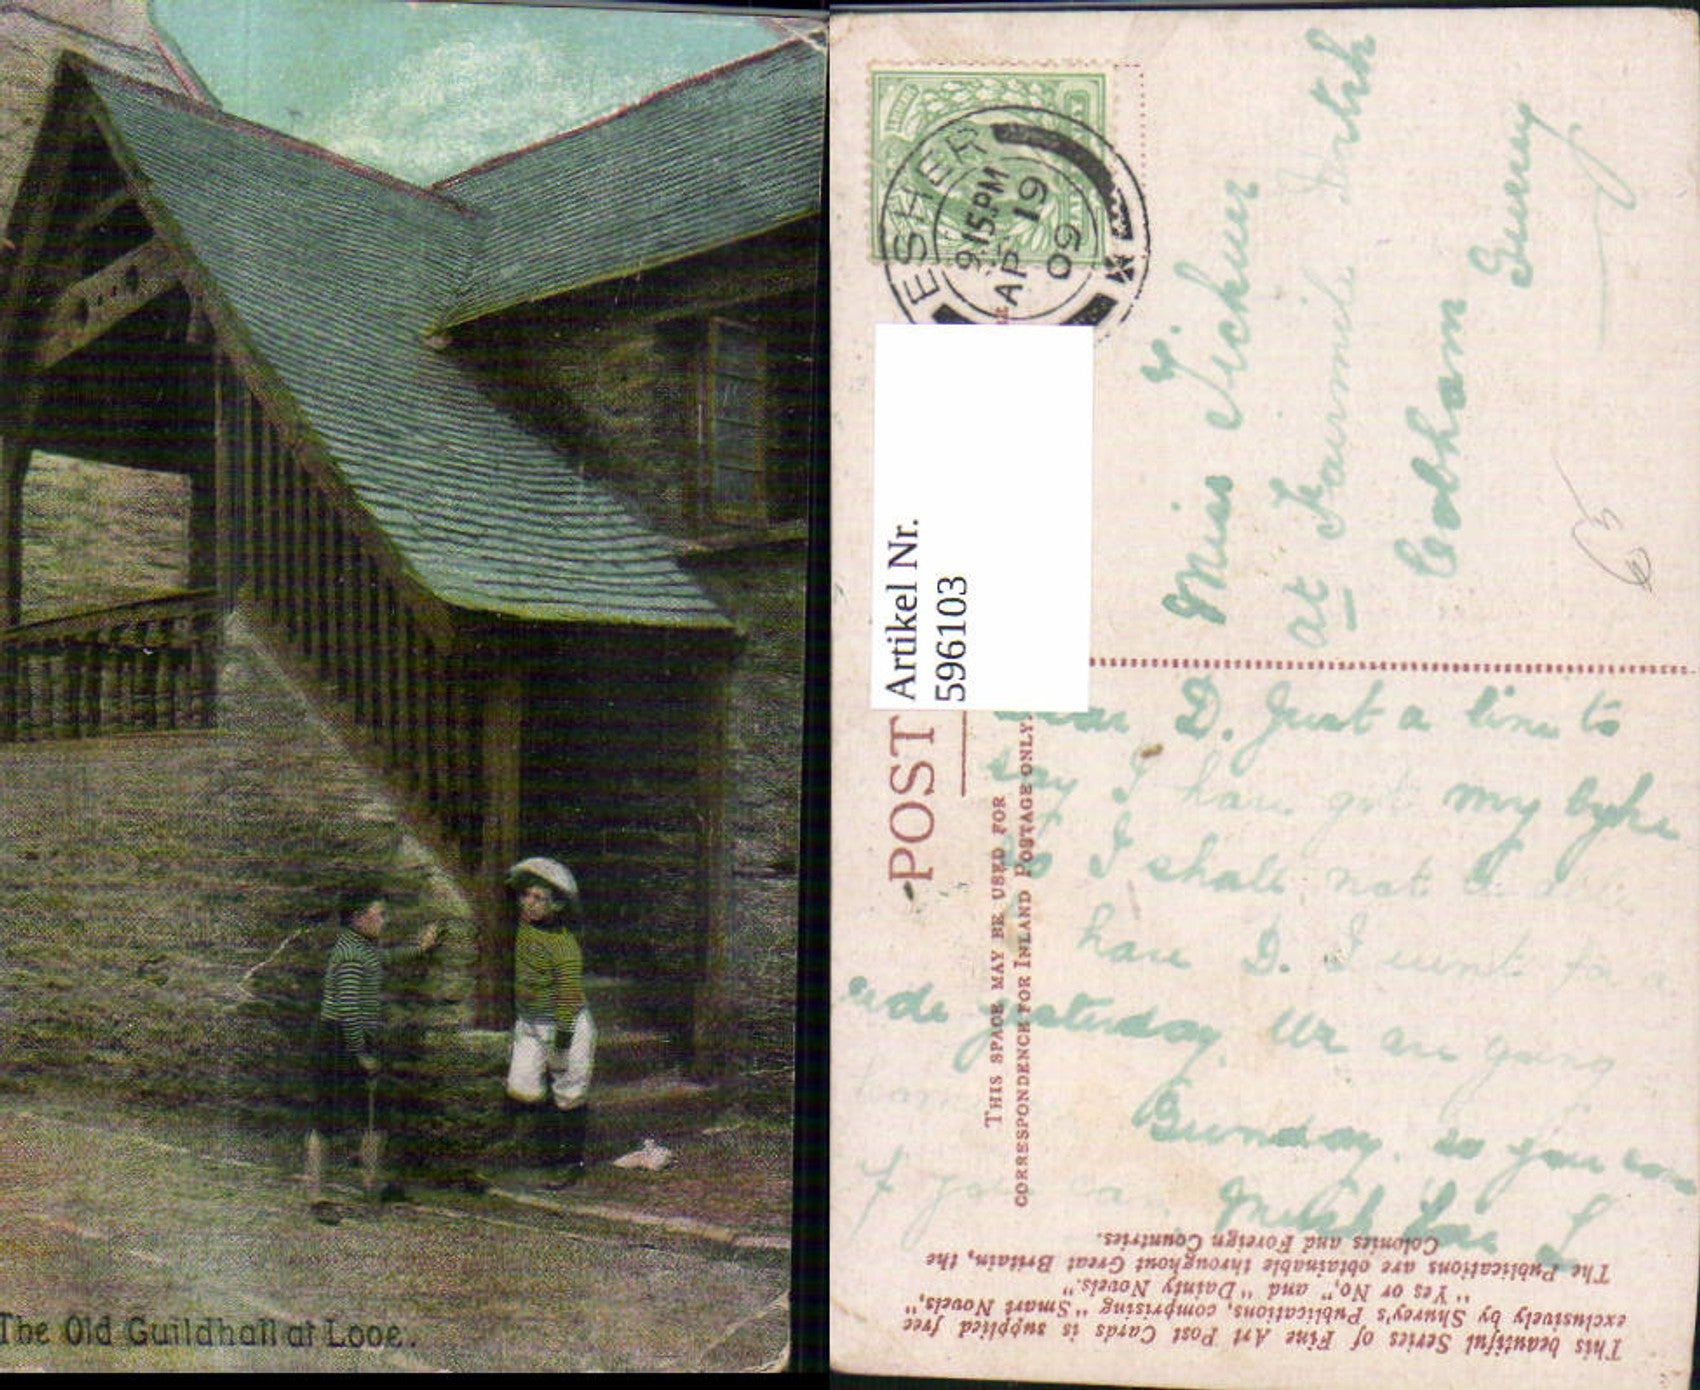 The Old Guildhall at Looe.
ESHER
9.15 PM
AP 19
09
Artikel Nr.
596103
POST
THIS SPACE MAY BE USED FOR
CORRESPONDENCE FOR INLAND POSTAGE ONLY.
Miss Tickner
at Fairmile
Cobham
Surrey
D. Just a line to
say I have got my byke
I shall not
have D. I went for a
ride yesterday. We are going
Sunday. so you can
if you can Much Love L
This beautiful Series of Fine Art Post Cards is supplied free
exclusively by Shurey's Publications, comprising "Smart Novels,"
"Yes or No," and "Dainty Novels."
The Publications are obtainable throughout Great Britain, the
Colonies and Foreign Countries.